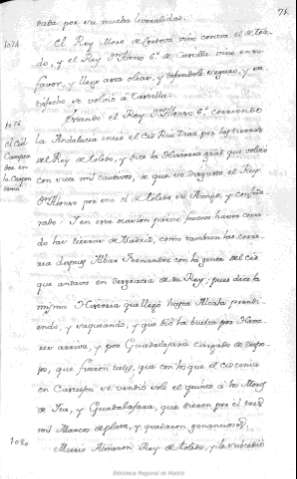 71.
taba por su mucha
1074
El Rey Moro de Cordova vino contra el de Tole=
do, y el Rey Dn. Alonso 6º de Castilla vino en su
favor, y llego asta olias, y
se volvió à Castilla.
1076
El Cid
Campea
dor en
la Carpen
tania
Estando el Rey Dn. Alonso 6º corriendo
la Andalucia el Cid Rui Diaz por las tierras
del Rey de Toledo, y dice la Historia gral que volvió
con siete mil cautivos, de que se disgusto el Rey
Dn. Alonso por ser el de Toledo su Amigo, y confede
rado: Y en esta ocasion parece fueron
das las tierras de Madrid, como tambien las corrie
ra despues Alvar Fernandez con la gente del Cid
que andava en desgracia de su Rey; pues dice la
misma Historia que llegó hasta Alcala prendi-
endo, y saqueando, y que dió la buelta por Hena-
res arriva, y por Guadalajara cargado de despo-
jos, que fueron tales, que con los que el Cid tenia
en Castejon se vendió solo el quinto à los Moros
de Ita, y Guadalajara, que dieron por el tres
mil Marcos de plata, y quedaron gananciosos.
1080
Murio Almenon Rey de Toledo, y le sucedio
Biblioteca Regional de Madrid